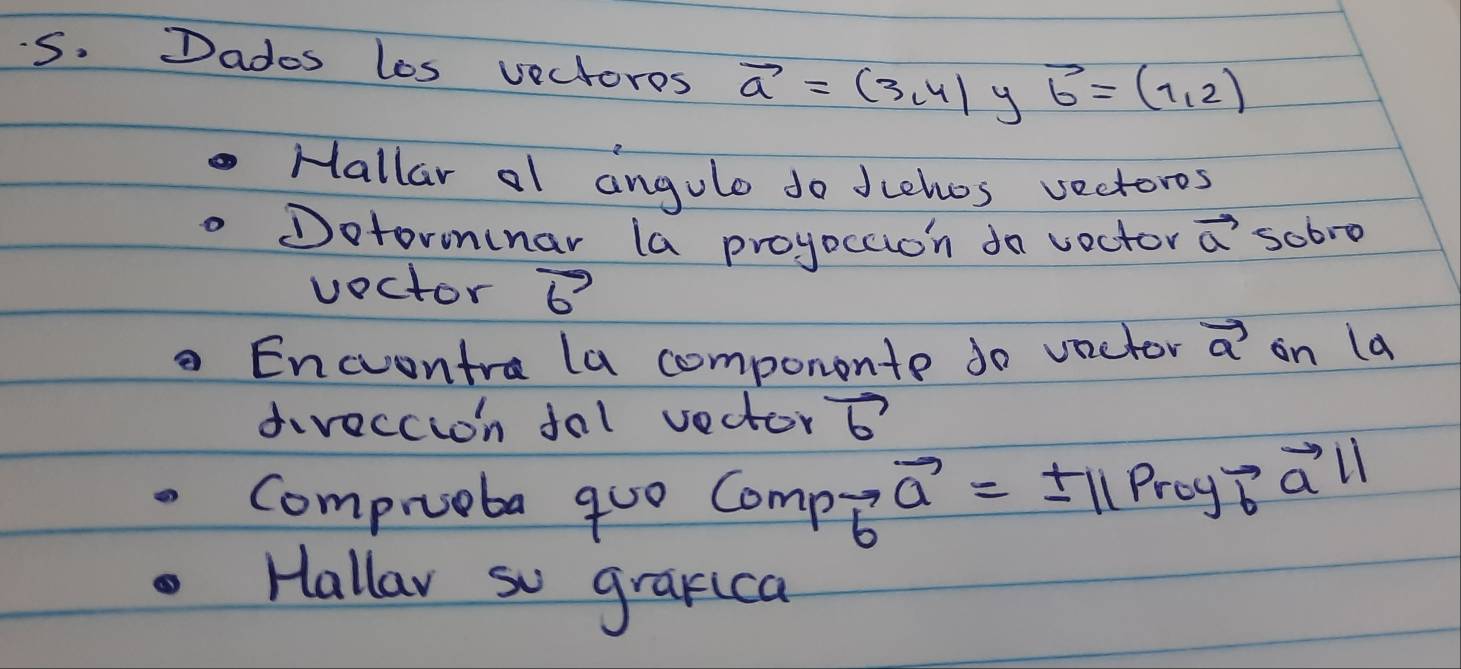 5. Dados los vectores a⃗ = (3,4) y b⃗ = (1,2)
• Hallar el ángulo de dichos vectores
• Determinar la proyección de vector a⃗ sobre
vector b⃗
• Encuentra la componente de vector a⃗ en la
dirección del vector b⃗
• Comprueba que Comp b⃗ a⃗ = ±||Proy b⃗ a⃗||
• Hallar su gráfica